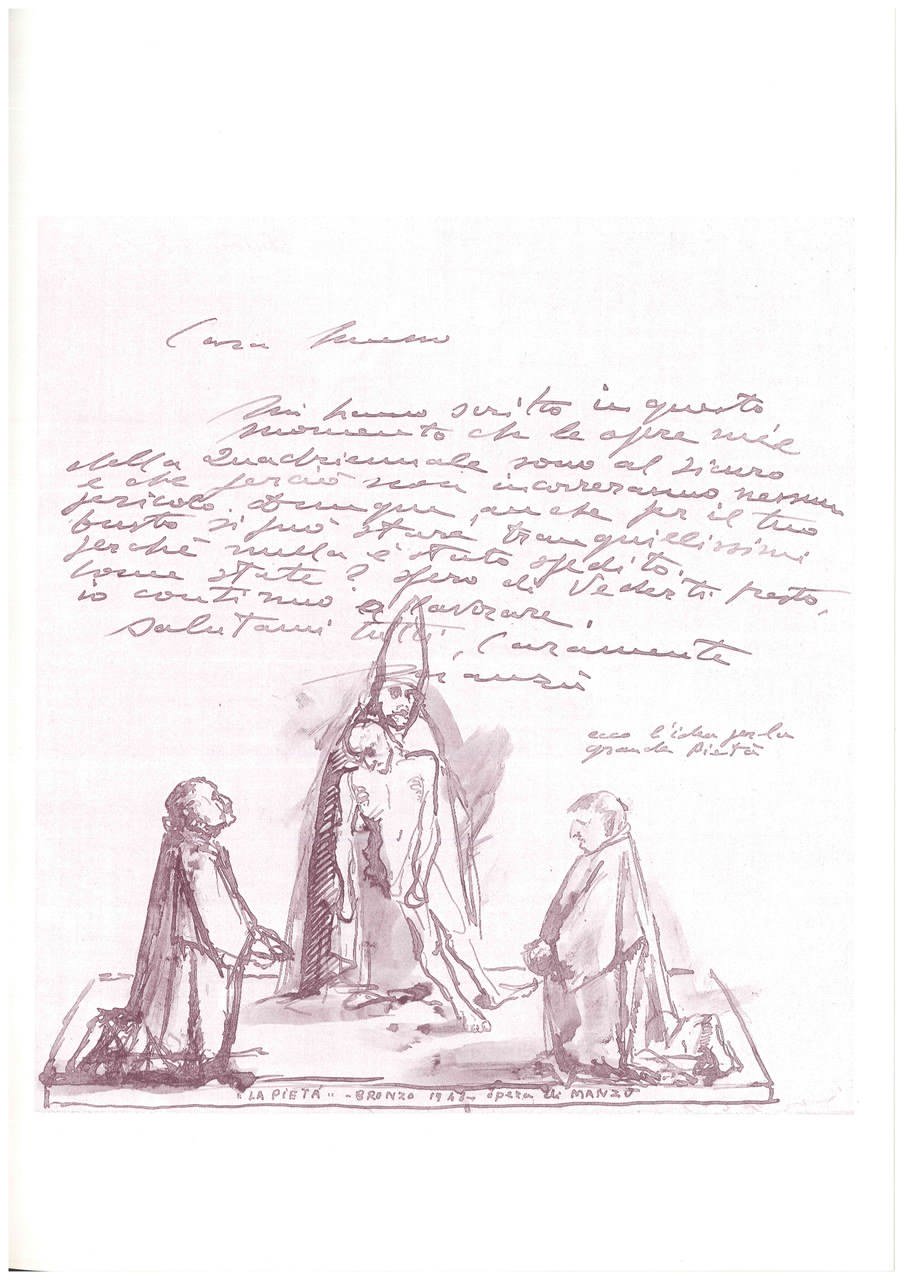 Cara Musso
Mi hanno scritto in questo
momento che le opere mie
della Quadriennale sono al sicuro
e che perciò non incorreranno nessun
pericolo. Dunque, anche per il tuo
busto si può stare tranquillissimi
perchè nulla è stato spedito.
Come state? spero di Vederti presto,
io continuo a lavorare,
salutami tutti, Caramente
Manzù
ecco l'idea per la
grande Pietà
"LA PIETÁ" - BRONZO opera di MANZÙ